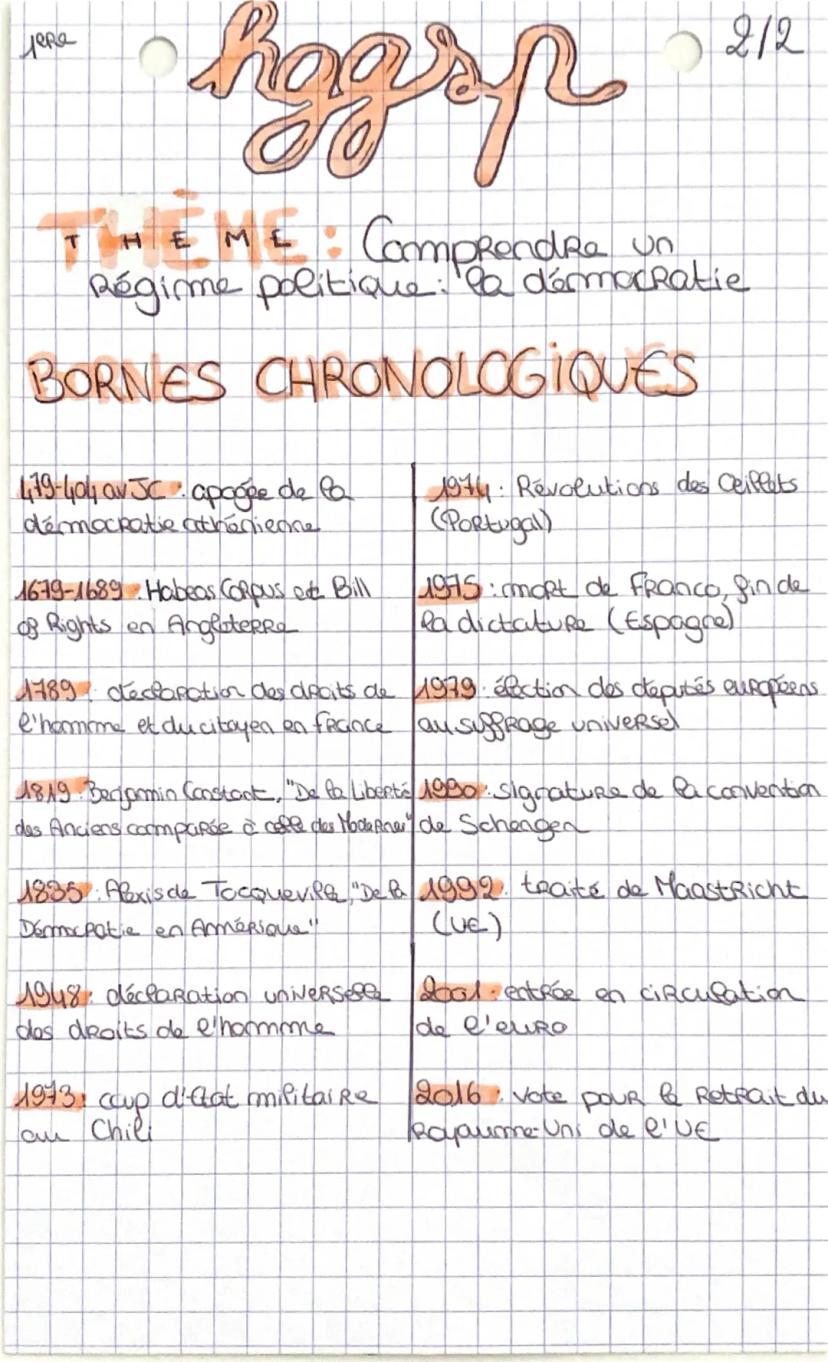 1ère
hggsp
2/2
THÈME : Comprendre un
régime politique : la démocratie
BORNES CHRONOLOGIQUES
479-404 av JC : apogée de la
démocratie athénienne
1679-1689 : Habeas Corpus et Bill
of Rights en Angleterre
1789 : déclaration des droits de
l'homme et du citoyen en france
1819 : Benjamin Constant, "De la Liberté
des Anciens comparée à celle des Modernes"
1835 : Alexis de Tocqueville, "De la
Démocratie en Amérique"
1948 : déclaration universelle
des droits de l'homme
1973 : coup d'état militaire
au Chili
1974 : Révolutions des œillets
(Portugal)
1975 : mort de Franco, fin de
la dictature (Espagne)
1979 : élection des députés européens
au suffrage universel
1990 : signature de la convention
de Schengen
1992 : traité de Maastricht
(UE)
2001 : entrée en circulation
de l'euro
2016 : vote pour le retrait du
Royaume-Uni de l'UE